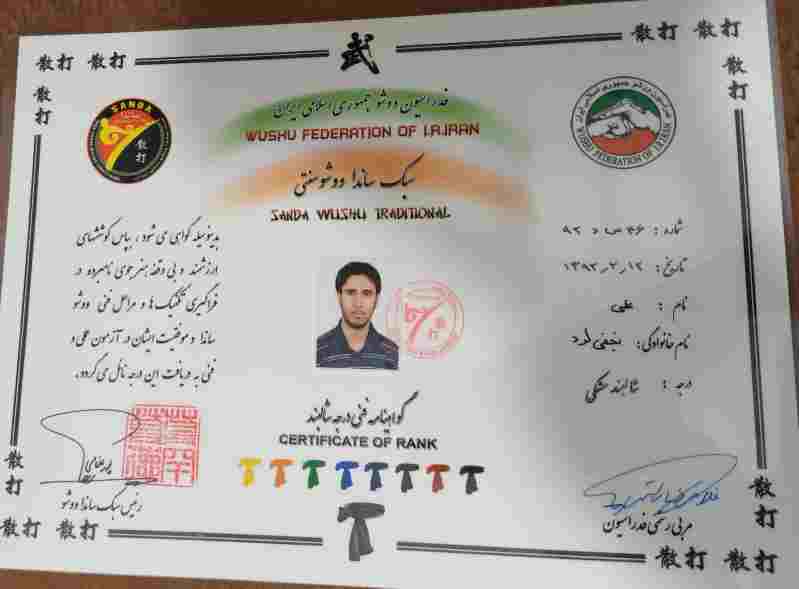 武
散打 散打
散打 散打
散打
散打
فدراسیون ووشو جمهوری اسلامی ایران
WUSHU FEDERATION OF I.R.IRAN
سبک ساندا ووشو سنتی
SANDA WUSHU TRADITIONAL
SANDA
散打
فدراسیون ووشو جمهوری اسلامی ایران
WUSHU FEDERATION OF I.R.IRAN
شماره : ۴۶ س د ۹۲
تاریخ : ۱۳۹۲٫۲٫۱۲
نام : علی
نام خانوادگی : نجفی لرد
درجه : شالبند مشکی
بدینوسیله گواهی می شود ، بپاس کوششهای
ارزشمند و بی وقفه هنرجوی نامبرده در
فراگیری تکنیک ها و مراحل فنی ووشو
ساندا و موفقیت ایشان در آزمون علمی و
فنی به دریافت این درجه نائل می گردد .
گواهینامه فنی درجه شالبند
CERTIFICATE OF RANK
رئیس سبک ساندا ووشو
مربی رسمی فدراسیون
散打
散打
散打 散打
散打 散打